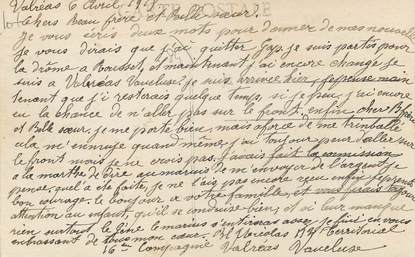 Valréas 6 Avril
chers Beau frère et Belle sœur.
Je vous écris deux mots pour donner de mes nouvelles
je vous dirais que j'ai quitter Gap je suis partis pour
la drôme a Rousset, et maintenant j'ai encore change je
suis a Valréas Vaucluse je suis arrivée hier, je pense main
tenant que j'i resterais quelque temps, si je peu j'ai encore
eu la chance de n'aller pas sur le front, enfin cher B frère
et Belle sœur, je me porte bien, mais a force de me trimballé
cela m'ennuye quand même, j'ai toujour peur d'aller sur
le front mois je ne crois pas. j'avais fait la commission
a la marthe de dire au marius de m'envoyer de l'argent, je
pense quel a ete faite, je ne l'ais pas encore reçu enfin
bon courage le bonjour a votre famille, et vous
attention au enfant, qu'il se conduise bien, et si leur manque
rien surtout le gêne, le marius s'interesse assez je fini en vous
embrassant de tous mon cœur. Bl Territorial
16me Compagnie Valréas Vaucluse